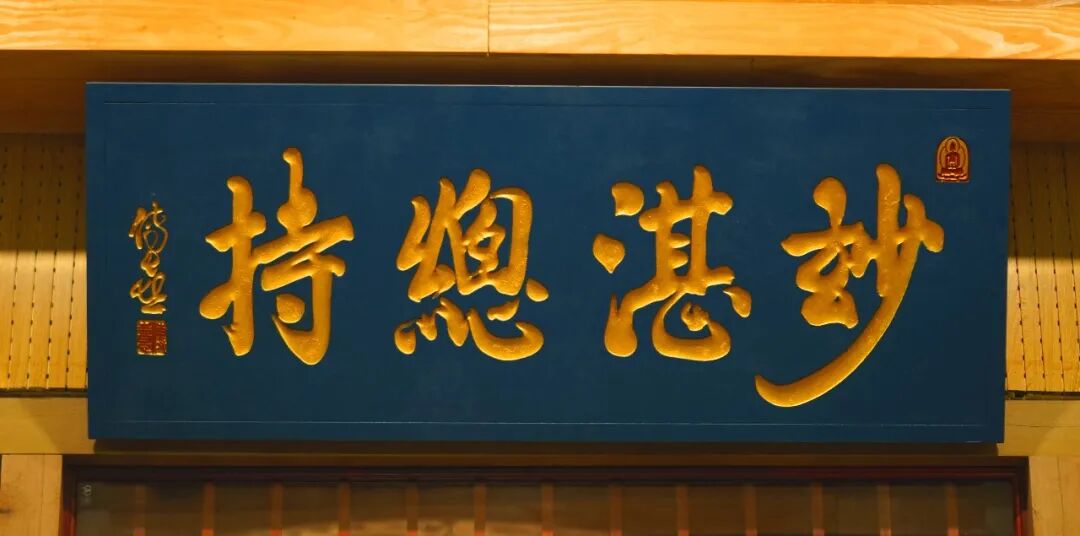 妙湛總持